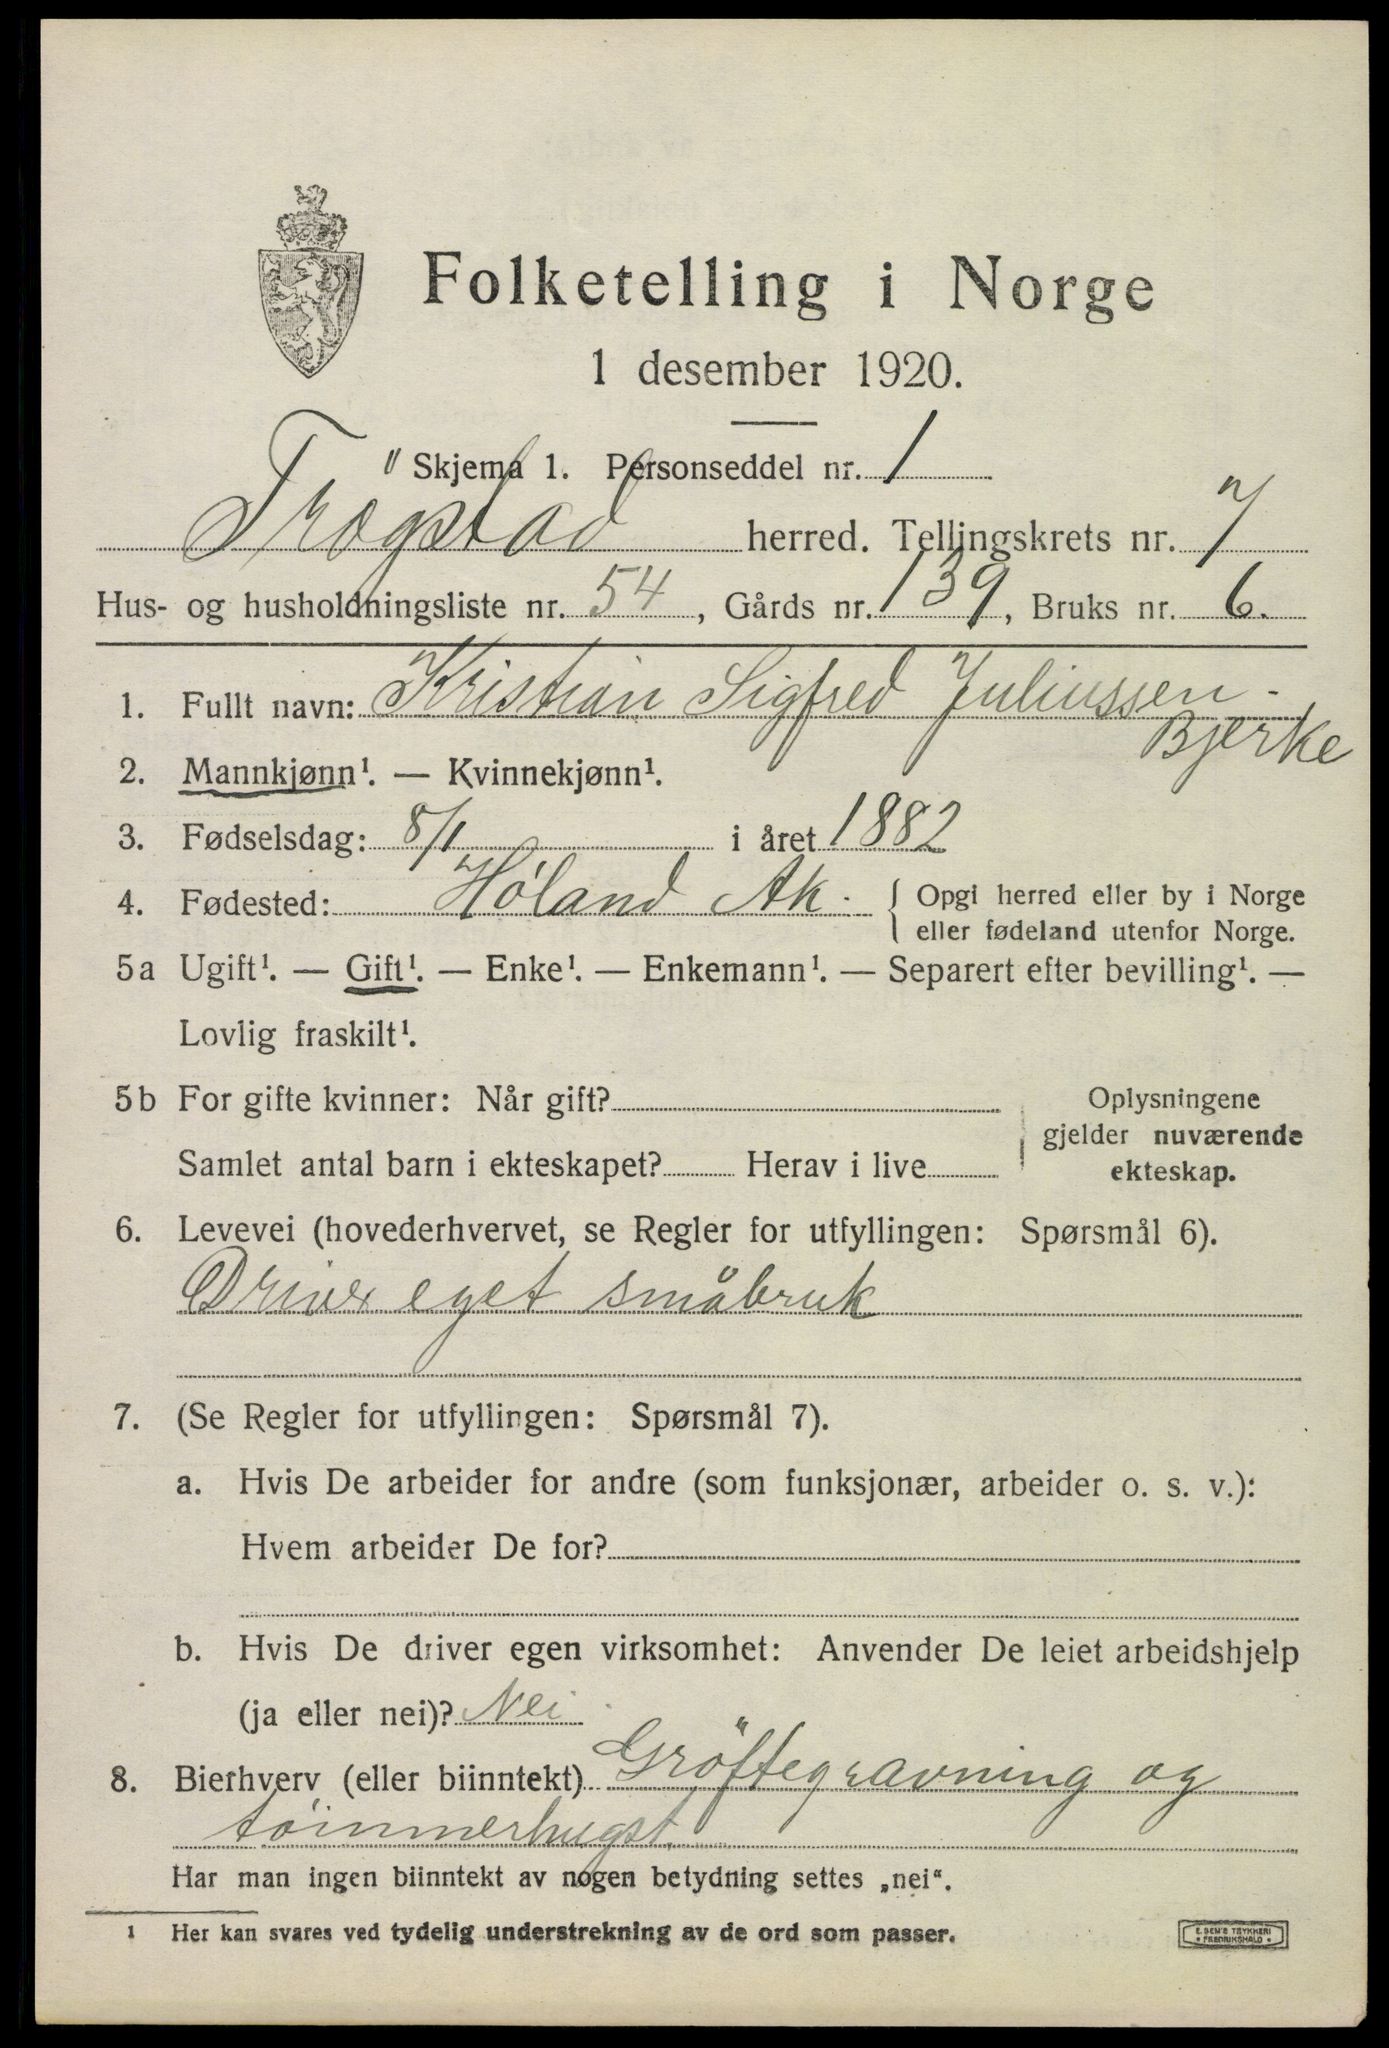 Folketelling i Norge
1 desember 1920.
Skjema 1. Personseddel nr. 1
Trøgstad herred. Tellingskrets nr. 7
Hus- og husholdningsliste nr. 54, Gårds nr. 139, Bruks nr. 6.
1. Fullt navn: Kristian Sigfred Juliussen -
Bjerke
2. Mannkjønn¹. — Kvinnekjønn¹.
3. Fødselsdag: 8/1 i året 1882
4. Fødested: Høland Ak. { Opgi herred eller by i Norge
eller fødeland utenfor Norge.
5a Ugift¹. — Gift¹. — Enke¹. — Enkemann¹. — Separert efter bevilling¹. —
Lovlig fraskilt¹.
5b For gifte kvinner: Når gift? Oplysningene
gjelder nuværende
Samlet antal barn i ekteskapet? Herav i live ekteskap.
6. Levevei (hovederhvervet, se Regler for utfyllingen: Spørsmål 6).
Driver eget småbruk
7. (Se Regler for utfyllingen: Spørsmål 7).
a. Hvis De arbeider for andre (som funksjonær, arbeider o. s. v.):
Hvem arbeider De for?
b. Hvis De driver egen virksomhet: Anvender De leiet arbeidshjelp
(ja eller nei)? Nei
8. Bierhverv (eller biinntekt) Gröftegravning og
tömmerhugst.
Har man ingen biinntekt av nogen betydning settes „nei“.
¹ Her kan svares ved tydelig understrekning av de ord som passer.
E. SEM'S TRYKKERI
• FREDRIKSHALD •